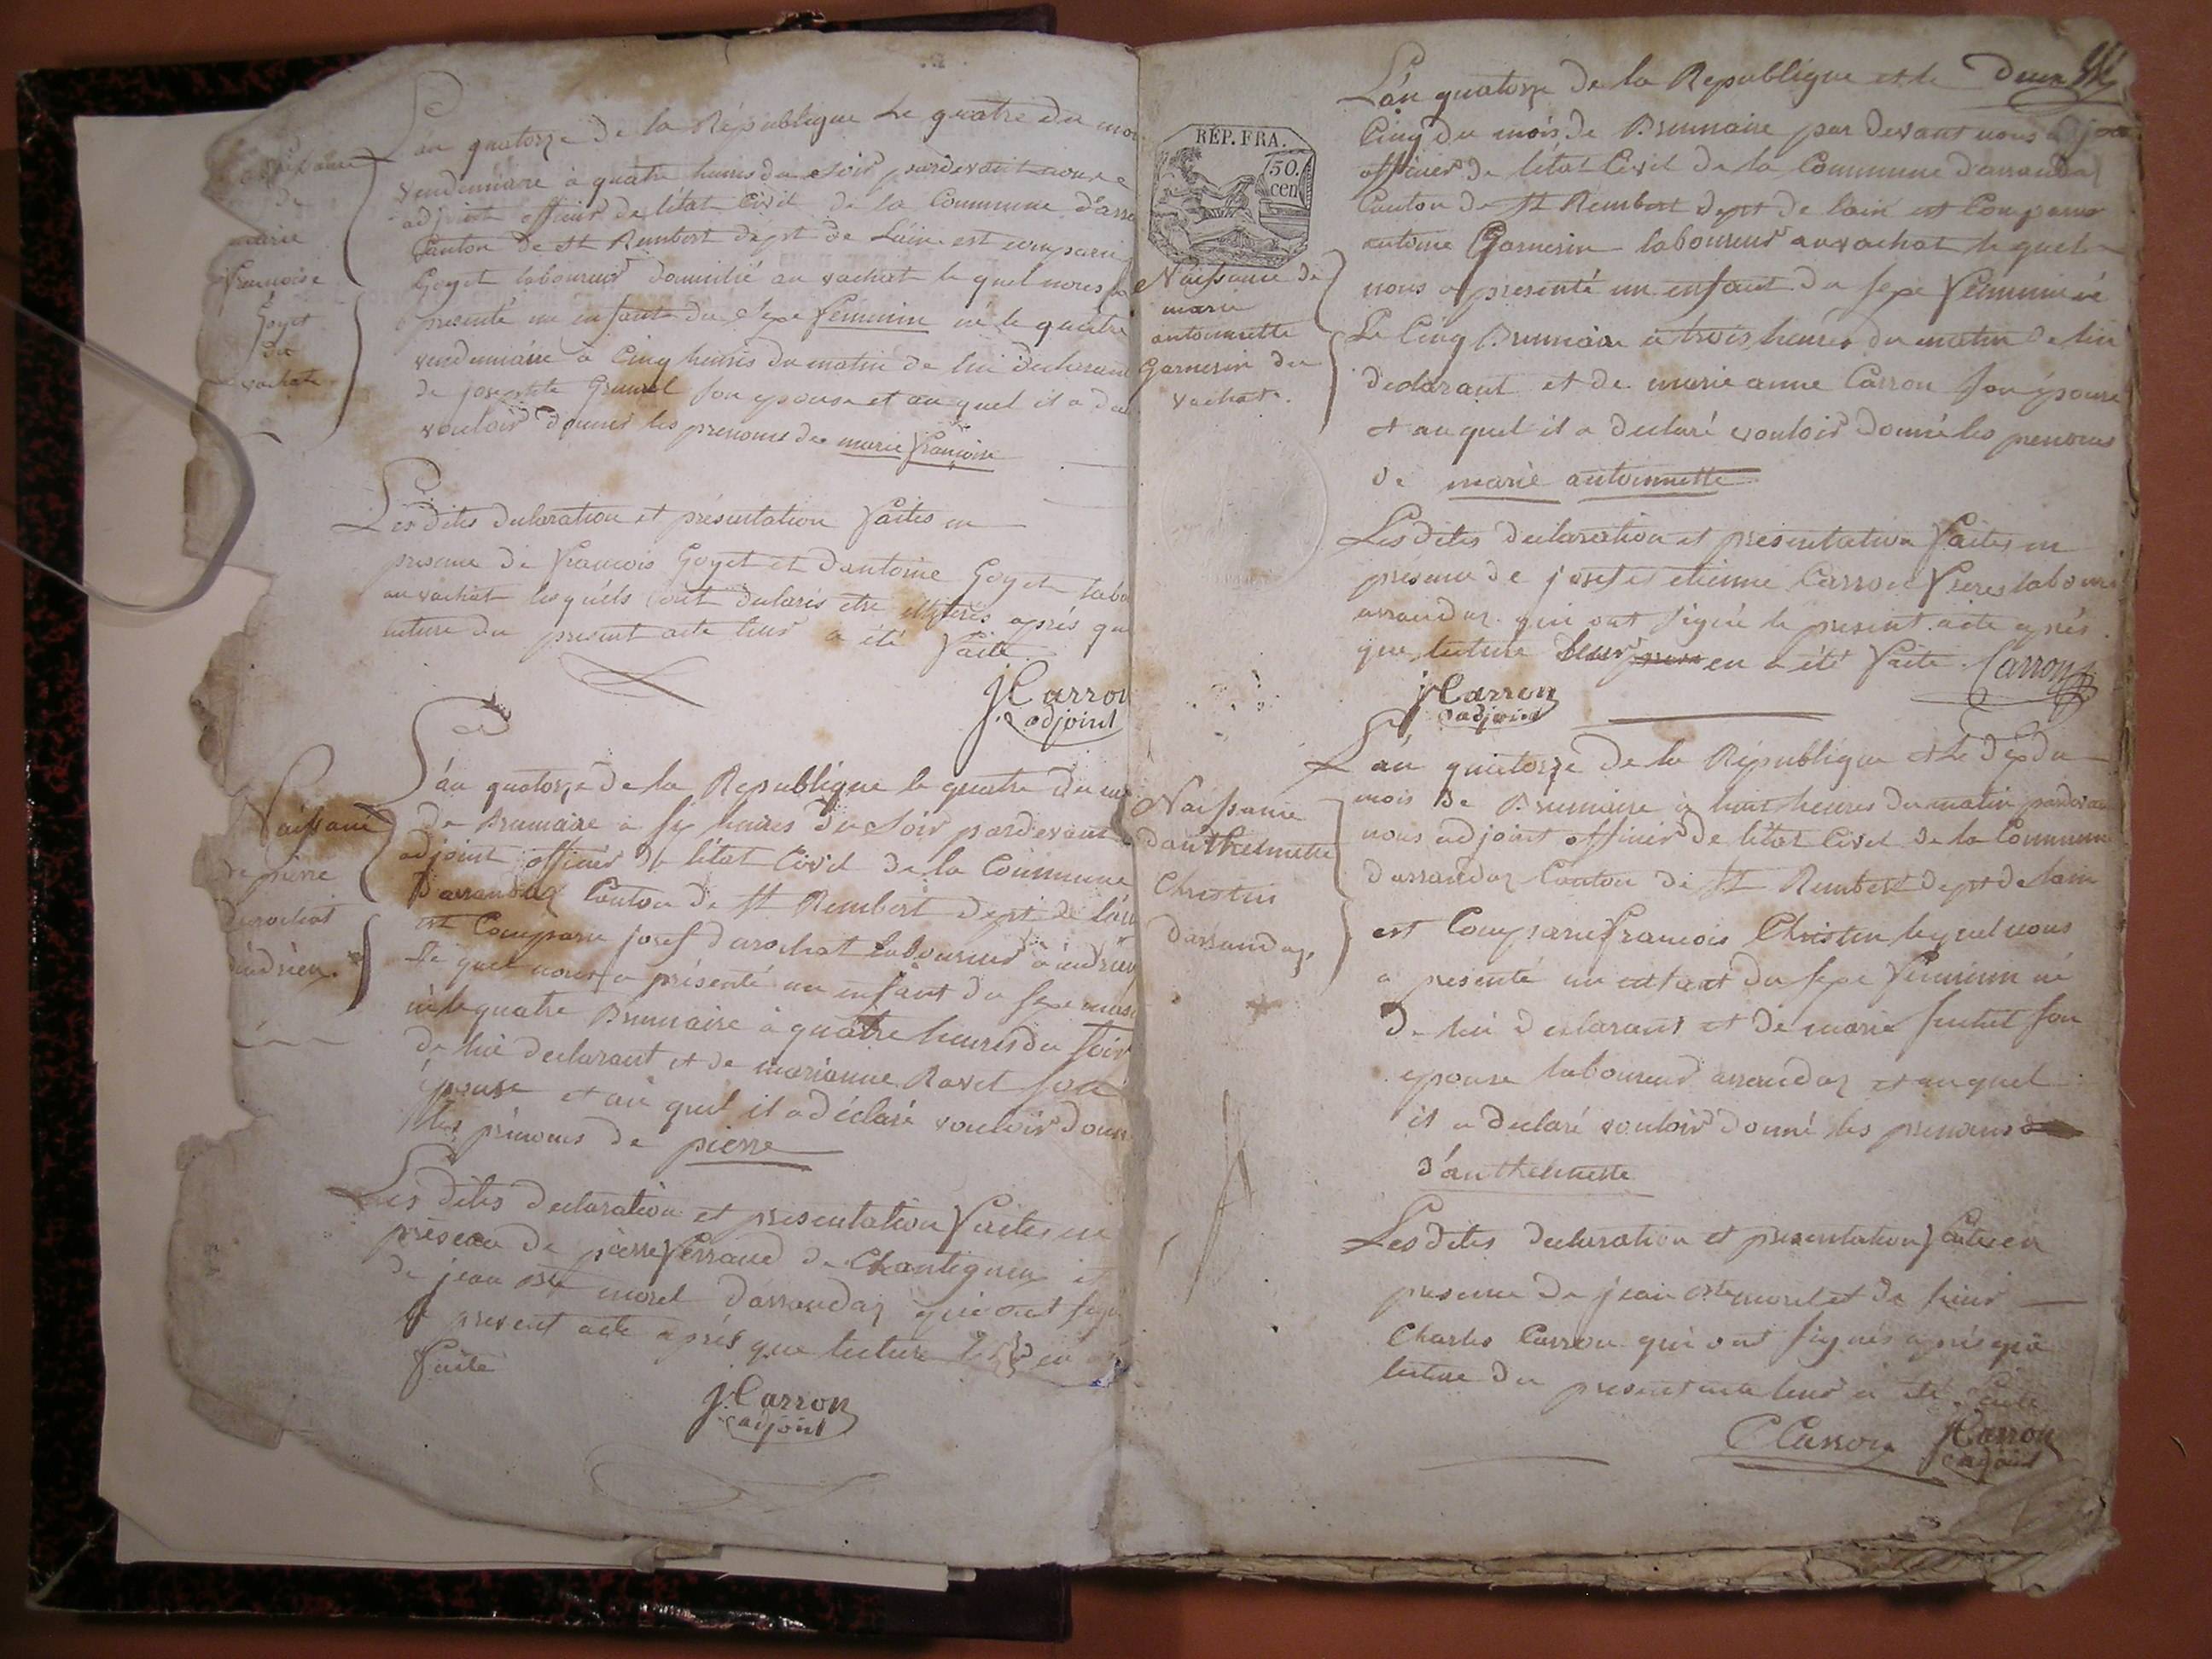 Naissance
de
marie
francoise
Goyet
du
vachat
L'an quatorze de la République le quatre du mois
vendemiaire à quatre heures du soir pardevant nous
adjoint officier de létat Civil de la Commune d'arra
Canton de St Rembert dept de Lain est comparu
Goyet laboureur domicilié au vachat le quel nous a
presenté un enfant du sexe feminin né le quatre
vendemiaire à Cinq heures du matin de lui declarant
de josephte Grumel son epouse et au quel il a de
vouloir donner les prenoms de marie françoise
Les dites declaration et présentation faites en
presence de francois Goyet et dantoine Goyet labo
au vachat lesquels ont declarés etre illiterés après qu
lecture du present acte leur a été faite
J Carron
adjoint
Naissance
de pierre
durochat
dindrieu.
L'an quatorze de la Republique le quatre du m
de Brumaire a six heures du soir pardevant
adjoint officier de létat Civil de la Commune
Darrandaz Canton de St Rembert dept de lain
est Comparu josef durochat laboureur à indrieu
le quel nous a présenté un enfant du sexe mas
né le quatre Brumaire à quatre heures du soir
de lui declarant et de marianne Ravet son
épouse et au quel il a déclaré vouloir donn
les prénoms de pierre
Les dites declaration et presentation faites en
présence de pierre ferraud de Chantignieu et
de jean bte morel darrandaz qui ont sign
le present acte après que lecture en
faite
J. Carron
adjoint
RÉP. FRA.
50.
cen
Naissance de
marie
antoinnette
Garnerin du
vachat.
L'an quatorze de la Republique et le deux
Cinq du mois de Brumaire par devant nous adjoint
officier de létat Civil de la Commune d'arrandaz
Canton de St Rembert dept de lain est Comparu
antoine Garnerin laboureur au vachat le quel
nous a présenté un enfant du sexe feminin né
Le Cinq Brumaire à trois heures du matin de lui
declarant et de marie anne Carron son épouse
et au quel il a declaré vouloir donné les prenoms
de marie antoinnette
Les dites declaration et presentation faites en
présence de josef et etienne Carron freres labour
arrandaz qui ont signé le present acte après
que lecture leur en a été faite. Carron
J Carron
adjoint
Naissance
danthelmette
Christin
darrandaz,
L'an quatorze de la République et le dix du
mois de Brumaire à huit heures du matin pardevant
nous adjoint officier de létat Civil de la Commune
darrandaz Canton de St Rembert dept de lain
est Comparu francois Christin lequel nous
a presenté un enfant du sexe feminin né
de lui declarant et de marie son
epouse laboureur arrandaz et au quel
il a declaré vouloir donné les prenoms
d'anthelmette
Les dites declaration et presentation faite en
presence de jean bte morel et de sieur
Charles Carron qui ont signés après que
lecture du present acte leur a été faite
C Carron J Carron
adjoint